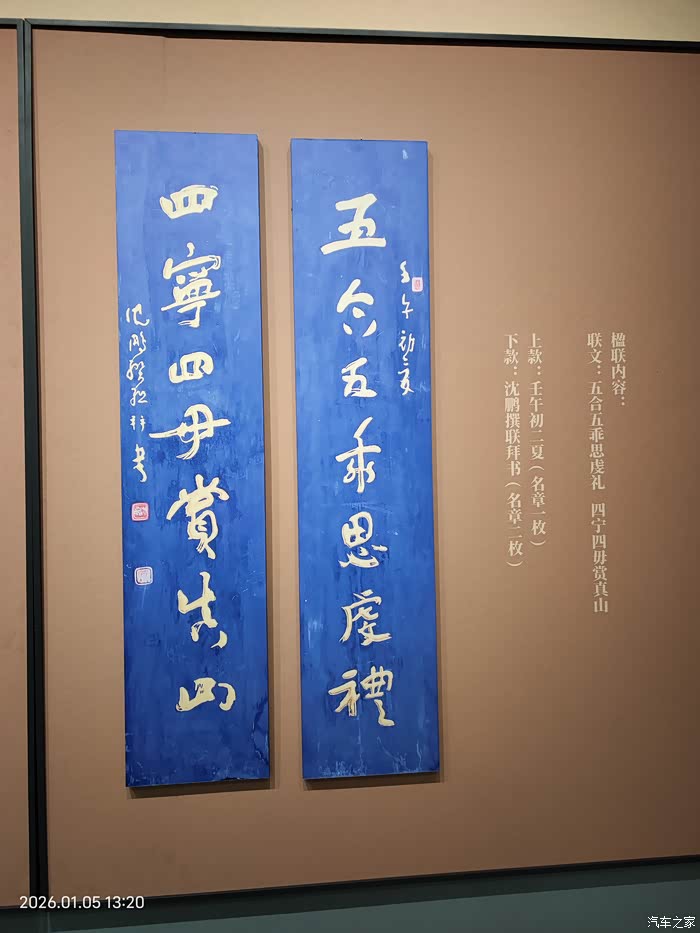 五合五乖思虔禮
壬午初夏
四寧四毋賞真山
沈鵬撰联拜书
楹联内容：
联文：五合五乖思虔礼　四宁四毋赏真山
上款：壬午初二夏（名章一枚）
下款：沈鹏撰联拜书（名章二枚）
2026.01.05 13:20
汽车之家